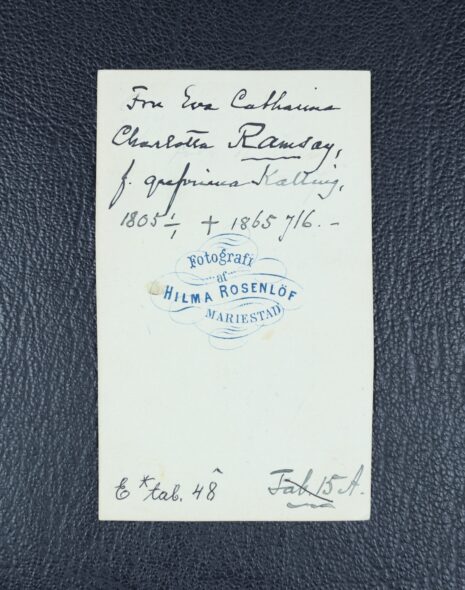 Fru Eva Catharina
Charlotta Ramsay,
f. grefvinna Kalling,
1805 1/1 + 1865 7/6. -
Fotografi
af
HILMA ROSENLÖF
MARIESTAD
E * tab. 48
Tab. 15 A.